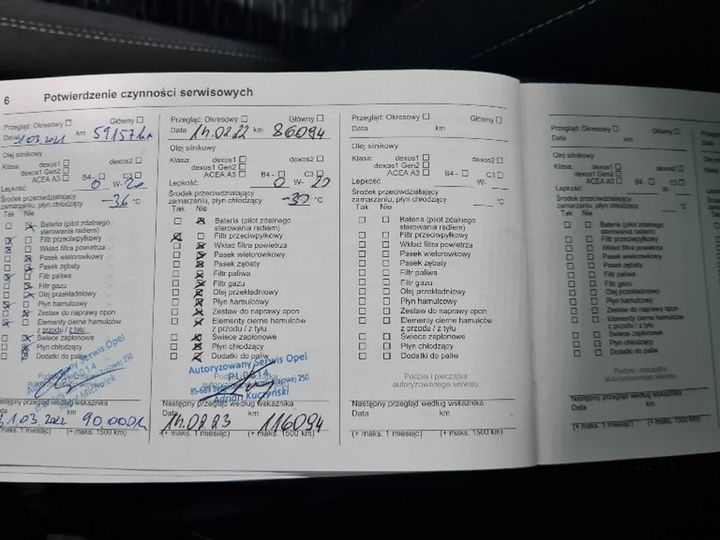 6 Potwierdzenie czynności serwisowych
Przegląd: Okresowy Główny
Data 31.03.2021 km 59157km
Olej silnikowy
Klasa: dexos1 dexos2
dexos1 Gen2
ACEA A3 B4 - C3
Lepkość: 0 W- 20
Środek przeciwdziałający
zamarzaniu, płyn chłodzący -36 °C
Tak Nie
Bateria (pilot zdalnego
sterowania radiem)
Filtr przeciwpyłkowy
Wkład filtra powietrza
Pasek wielorowkowy
Pasek zębaty
Filtr paliwa
Filtr gazu
Olej przekładniowy
Płyn hamulcowy
Zestaw do naprawy opon
Elementy cierne hamulców
z przodu / z tyłu
Świece zapłonowe
Płyn chłodzący
Dodatki do paliw
Serwis Opel
Następny przegląd według wskaźnika
Data km
31.03.2022 90.000km
(+ maks. 1 miesiąc) (+ maks. 1500 km)
Przegląd: Okresowy Główny
Data 14.02.22 km 86094
Olej silnikowy
Klasa: dexos1 dexos2
dexos1 Gen2
ACEA A3 B4 - C3
Lepkość: 0 W- 20
Środek przeciwdziałający
zamarzaniu, płyn chłodzący -37 °C
Tak Nie
Bateria (pilot zdalnego
sterowania radiem)
Filtr przeciwpyłkowy
Wkład filtra powietrza
Pasek wielorowkowy
Pasek zębaty
Filtr paliwa
Filtr gazu
Olej przekładniowy
Płyn hamulcowy
Zestaw do naprawy opon
Elementy cierne hamulców
z przodu / z tyłu
Świece zapłonowe
Płyn chłodzący
Dodatki do paliw
Autoryzowany Serwis Opel
PL 0914
Adrian Kuczyński
Następny przegląd według wskaźnika
Data km
14.02.23 116094
(+ maks. 1 miesiąc) (+ maks. 1500 km)
Przegląd: Okresowy Główny
Data km
Olej silnikowy
Klasa: dexos1 dexos2
dexos1 Gen2
ACEA A3 B4 - C3
Lepkość: W-
Środek przeciwdziałający
zamarzaniu, płyn chłodzący °C
Tak Nie
Bateria (pilot zdalnego
sterowania radiem)
Filtr przeciwpyłkowy
Wkład filtra powietrza
Pasek wielorowkowy
Pasek zębaty
Filtr paliwa
Filtr gazu
Olej przekładniowy
Płyn hamulcowy
Zestaw do naprawy opon
Elementy cierne hamulców
z przodu / z tyłu
Świece zapłonowe
Płyn chłodzący
Dodatki do paliw
Podpis i pieczątka
autoryzowanego serwisu
Następny przegląd według wskaźnika
Data km
(+ maks. 1 miesiąc) (+ maks. 1500 km)
Przegląd: Okresowy Główny
Data km
Olej silnikowy
Klasa: dexos1 dexos2
dexos1 Gen2
ACEA A3 B4 - C3
Lepkość: W-
Środek przeciwdziałający
zamarzaniu, płyn chłodzący °C
Tak Nie
Bateria (pilot zdalnego
sterowania radiem)
Filtr przeciwpyłkowy
Wkład filtra powietrza
Pasek wielorowkowy
Pasek zębaty
Filtr paliwa
Filtr gazu
Olej przekładniowy
Płyn hamulcowy
Zestaw do naprawy opon
Elementy cierne hamulców
z przodu / z tyłu
Świece zapłonowe
Płyn chłodzący
Dodatki do paliw
Podpis i pieczątka
autoryzowanego serwisu
Następny przegląd według wskaźnika
Data km
(+ maks. 1 miesiąc) (+ maks. 1500 km)